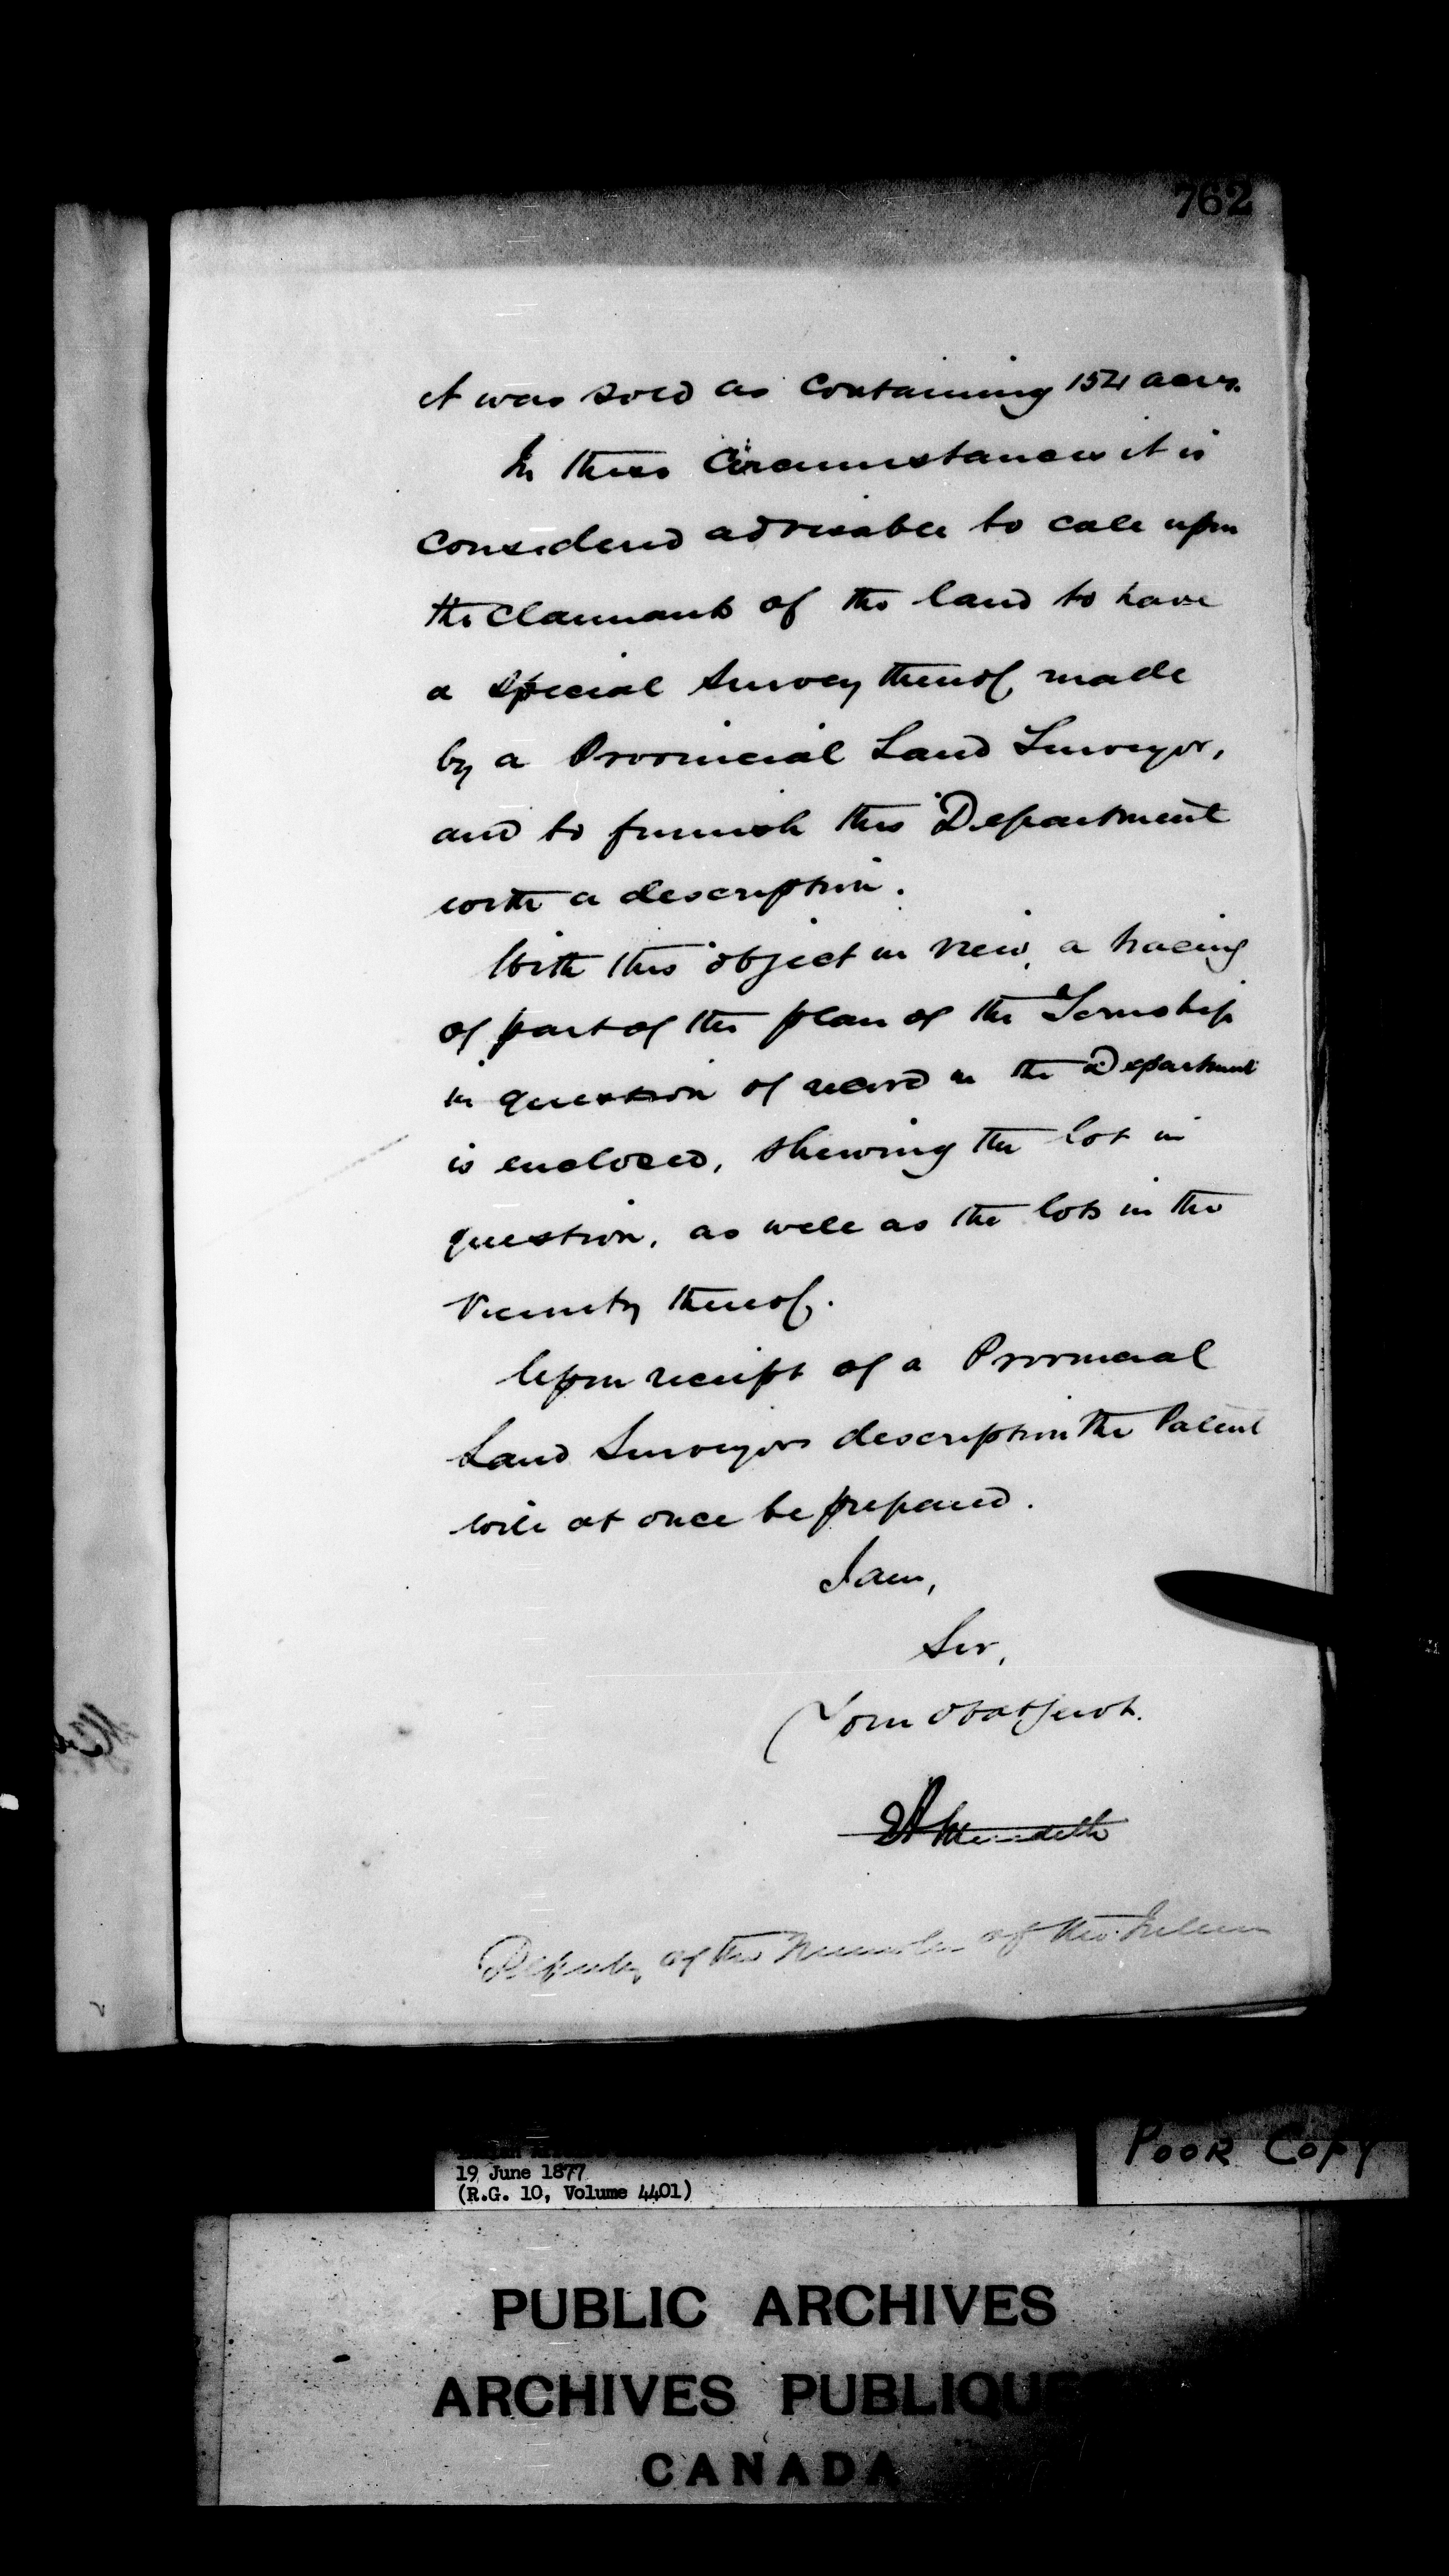 762
it was sold as containing 154 acres.
In these Circumstances it is
considered advisable to call upon
the Claimants of the land to have
a special survey thereof made
by a Provincial Land Surveyor,
and to furnish this Department
with a description.
With this object in view, a tracing
of part of the plan of the Township
in question of record in the Department
is enclosed, shewing the lot in
question, as well as the lots in the
vicinity thereof.
Upon receipt of a Provincial
Land Surveyors description the Patent
will at once be prepared.
I am,
Sir,
Your obdt servt.
EA Meredith
Deputy of the Minister of the Interior
19 June 1877
(R.G. 10, Volume 4401)
POOR COPY
PUBLIC ARCHIVES
ARCHIVES PUBLIQUE
CANADA